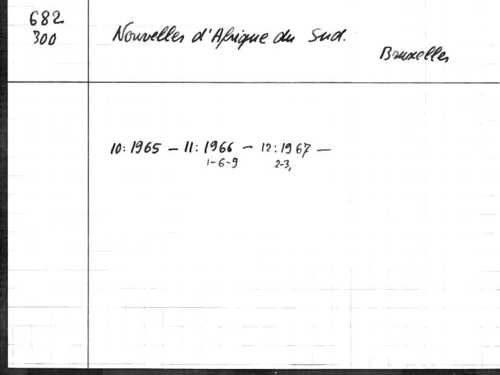 682
300
Nouvelles d'Afrique du Sud.
Bruxelles
10: 1965 – 11: 1966 – 12: 1967 –
1-6-9 2-3,